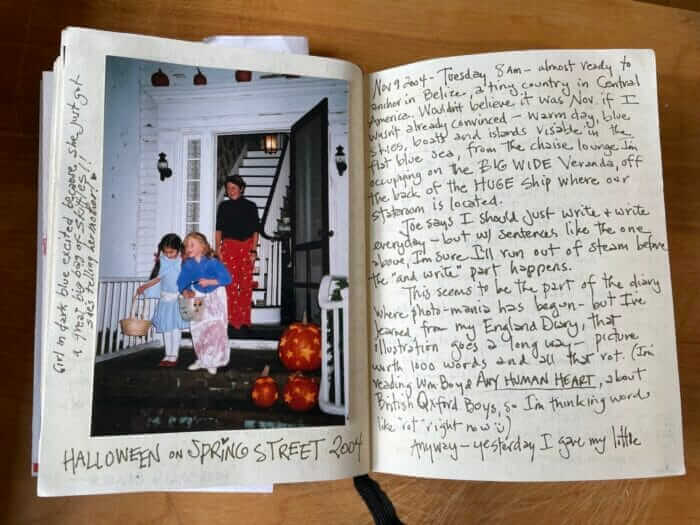 Girl in dark blue excited because she just got
a great big bag of Skittles!!
she's telling her mother!
HALLOWEEN ON SPRING STREET 2004
Nov 9 2004 - Tuesday 8am - almost ready to
anchor in Belize, a tiny country in Central
America. Wouldn't believe it was Nov. if I
wasn't already convinced - warm day, blue
skies, boats and islands visable in the
flat blue sea, from the chaise lounge I'm
occupying on the BIG WIDE Veranda, off
the back of the HUGE ship where our
stateroom is located.
Joe says I should just write & write
everyday - but w/ sentences like the one
above, I'm sure I'll run out of steam before
the "and write" part happens.
This seems to be the part of the diary
where photo-mania has begun - but I've
learned from my England Diary, that
illustration goes a long way - picture
worth 1000 words and all that rot. (I'm
reading Wm Boyd ANY HUMAN HEART, about
British Oxford Boys, so I'm thinking words
like "rot" right now :)
Anyway - yesterday I gave my little